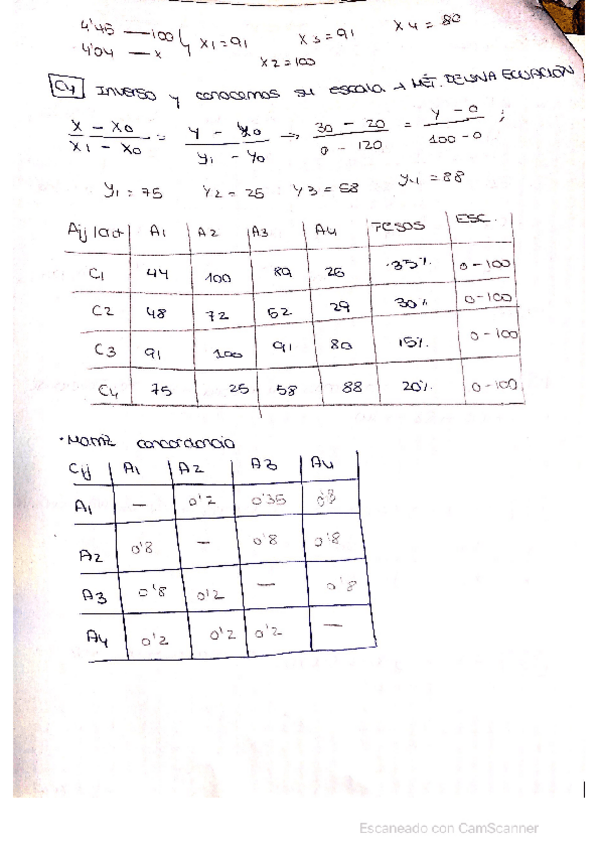 4'45 — 100 } x1=91 x3=91 x4= 80
4'04 — x x2=100
C4 INVERSO y conocemos su escala → MÉT. DE UNA ECUACIÓN
x - x0 / x1 - x0 = y - y0 / y1 - y0 → 30 - 20 / 0 - 120 = y - 0 / 100 - 0 ;
y1 = 75 y2 = 25 y3 = 58 y4 = 88
Aij | act A1 A2 A3 A4 PESOS ESC.
C1 44 100 89 26 35% 0-100
C2 48 72 62 29 30% 0-100
C3 91 100 91 80 15% 0-100
C4 75 25 58 88 20% 0-100
· Matriz concordancia
Cij A1 A2 A3 A4
A1 — 0'2 0'35 0'8
A2 0'8 — 0'8 0'8
A3 0'8 0'2 — 0'8
A4 0'2 0'2 0'2 —
Escaneado con CamScanner